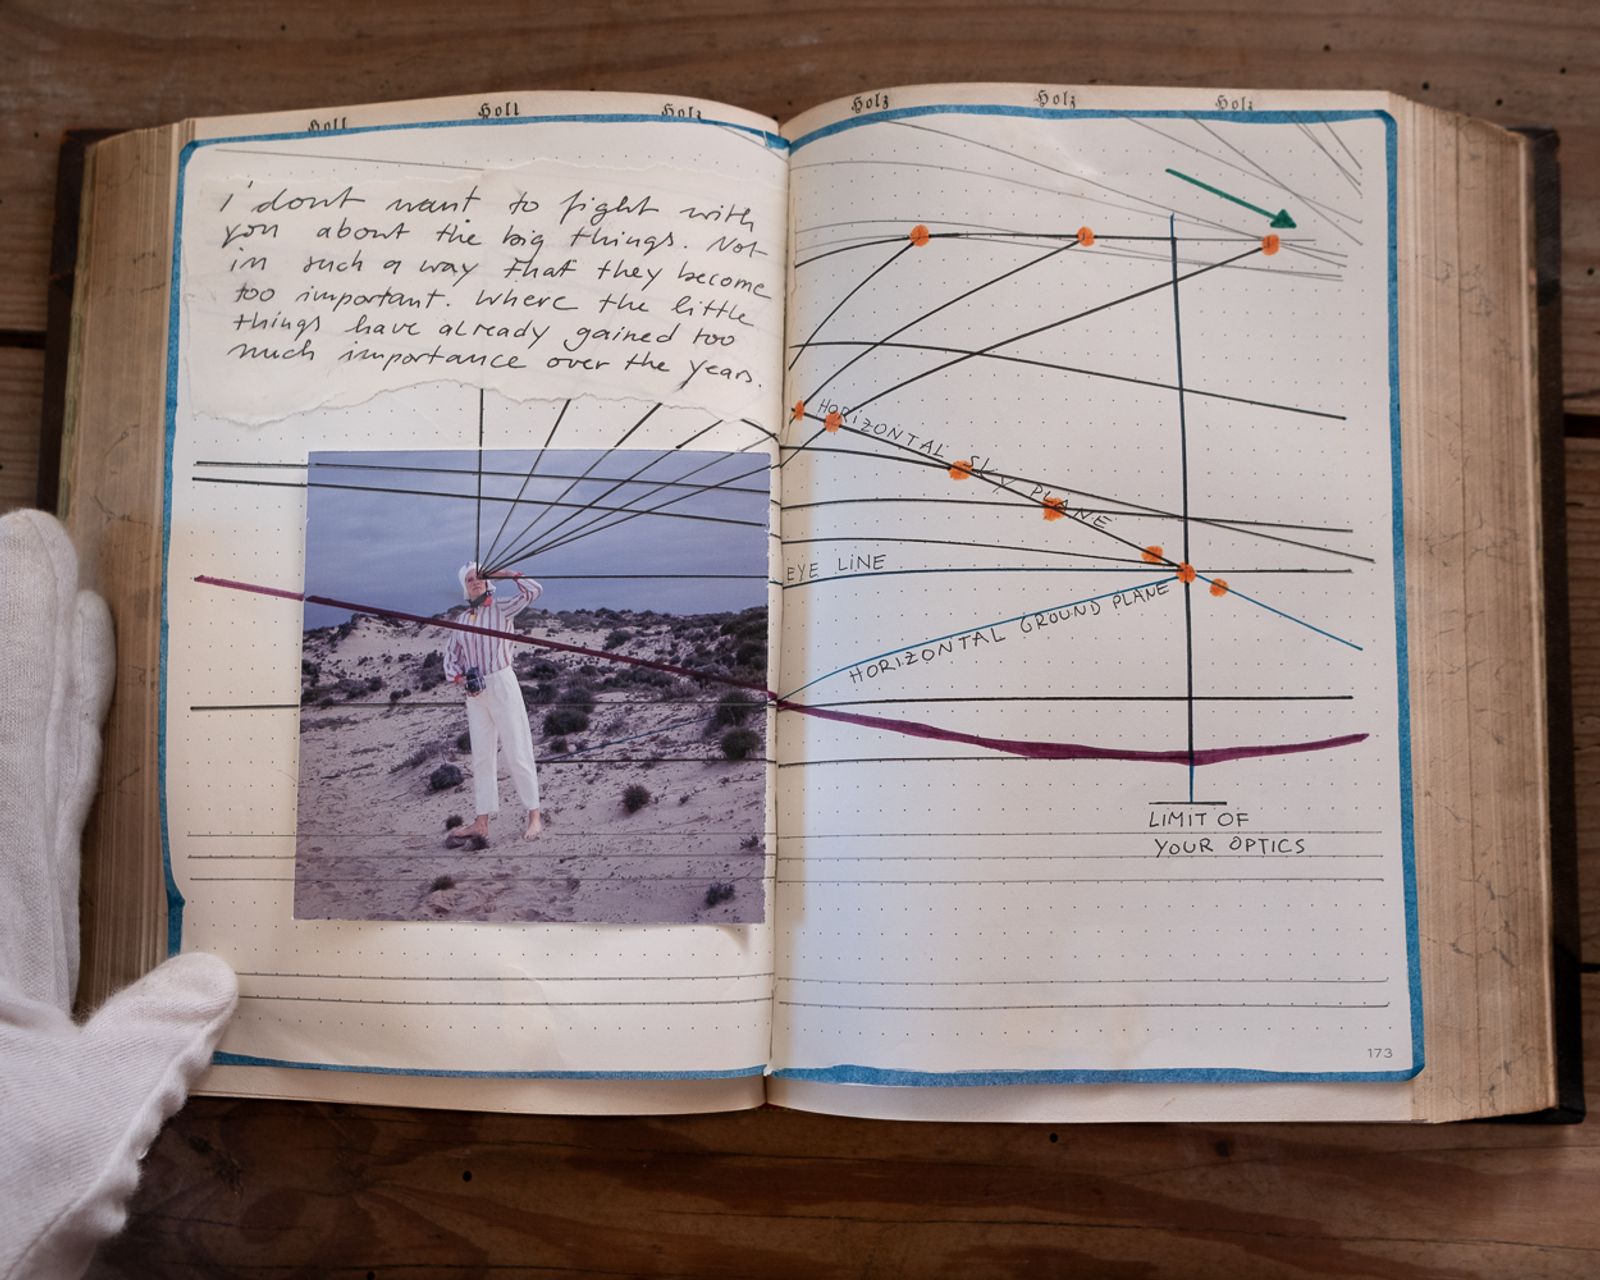 Holl
Holl
Holz
Holz
Holz
Holz
i dont want to fight with
you about the big things. Not
in such a way that they become
too important. Where the little
things have already gained too
much importance over the years.
HORIZONTAL SKY PLANE
EYE LINE
HORIZONTAL GROUND PLANE
LIMIT OF
YOUR OPTICS
173